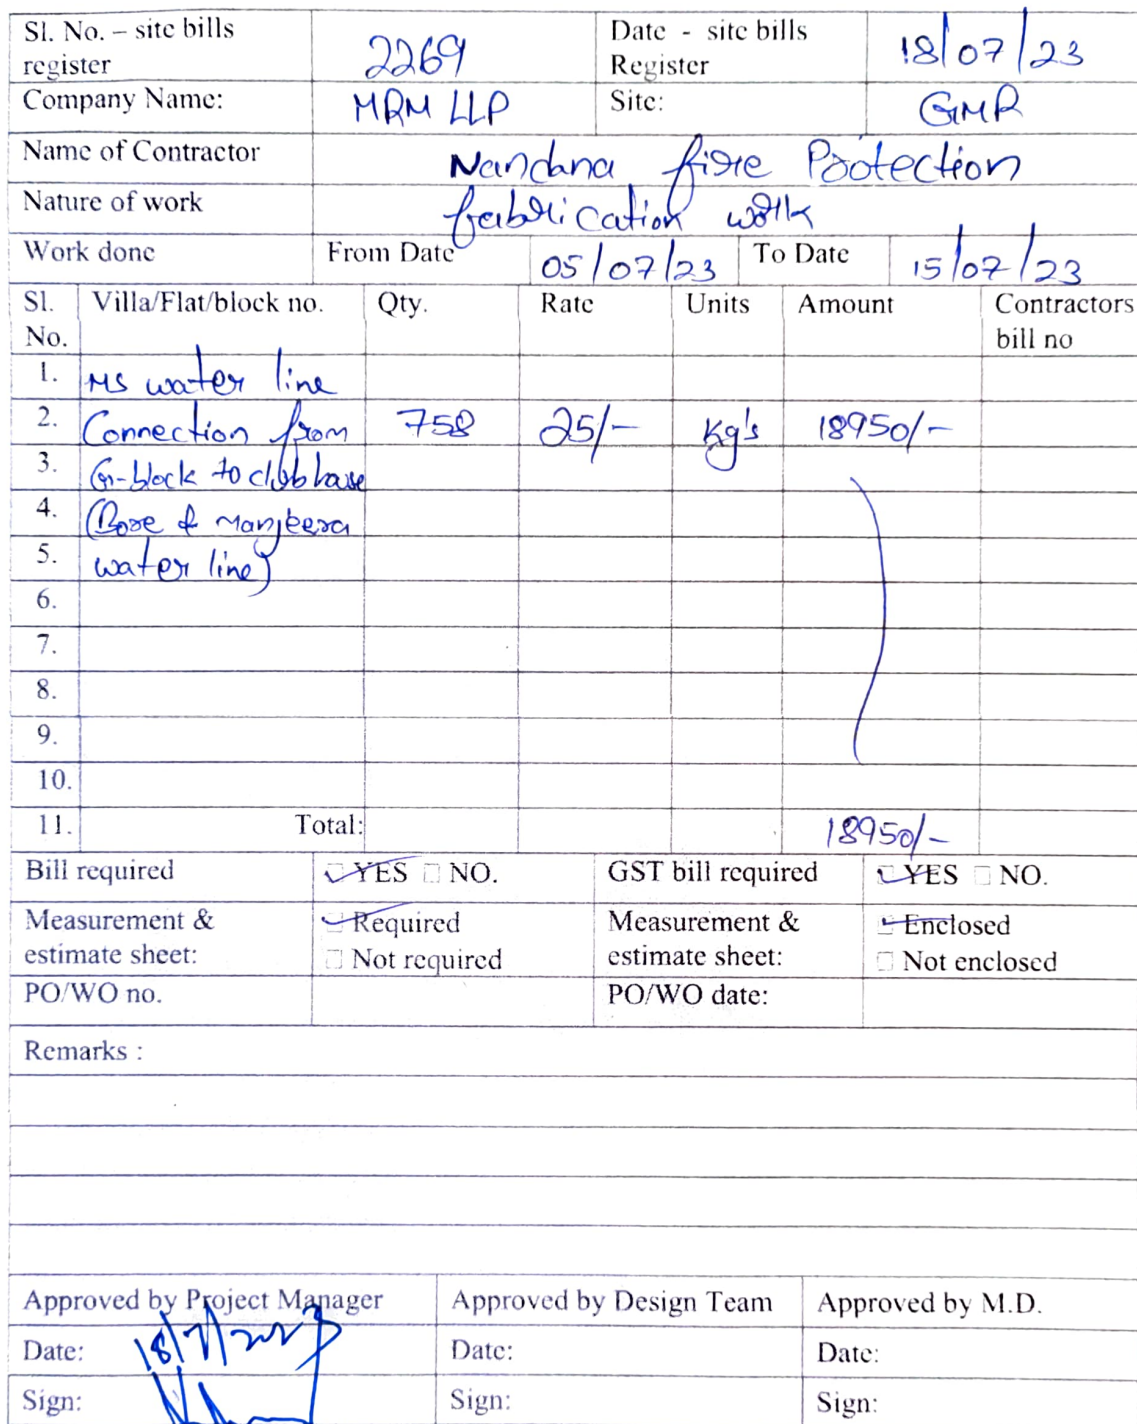 Sl. No. – site bills register 2269 Date - site bills Register 18/07/23
Company Name: MRM LLP Site: GMR
Name of Contractor Nandana fire Protection
Nature of work fabrication work
Work done From Date 05/07/23 To Date 15/07/23
Sl. No. Villa/Flat/block no. Qty. Rate Units Amount Contractors bill no
1. MS water line
2. Connection from 758 25/- Kg's 18950/-
3. G-block to club house
4. (Bore & Manjeera
5. water line)
6.
7.
8.
9.
10.
11. Total: 18950/-
Bill required YES NO. GST bill required YES NO.
Measurement & estimate sheet: Required Not required Measurement & estimate sheet: Enclosed Not enclosed
PO/WO no. PO/WO date:
Remarks :
Approved by Project Manager Approved by Design Team Approved by M.D.
Date: 18/7/2023 Date: Date:
Sign: Sign: Sign: